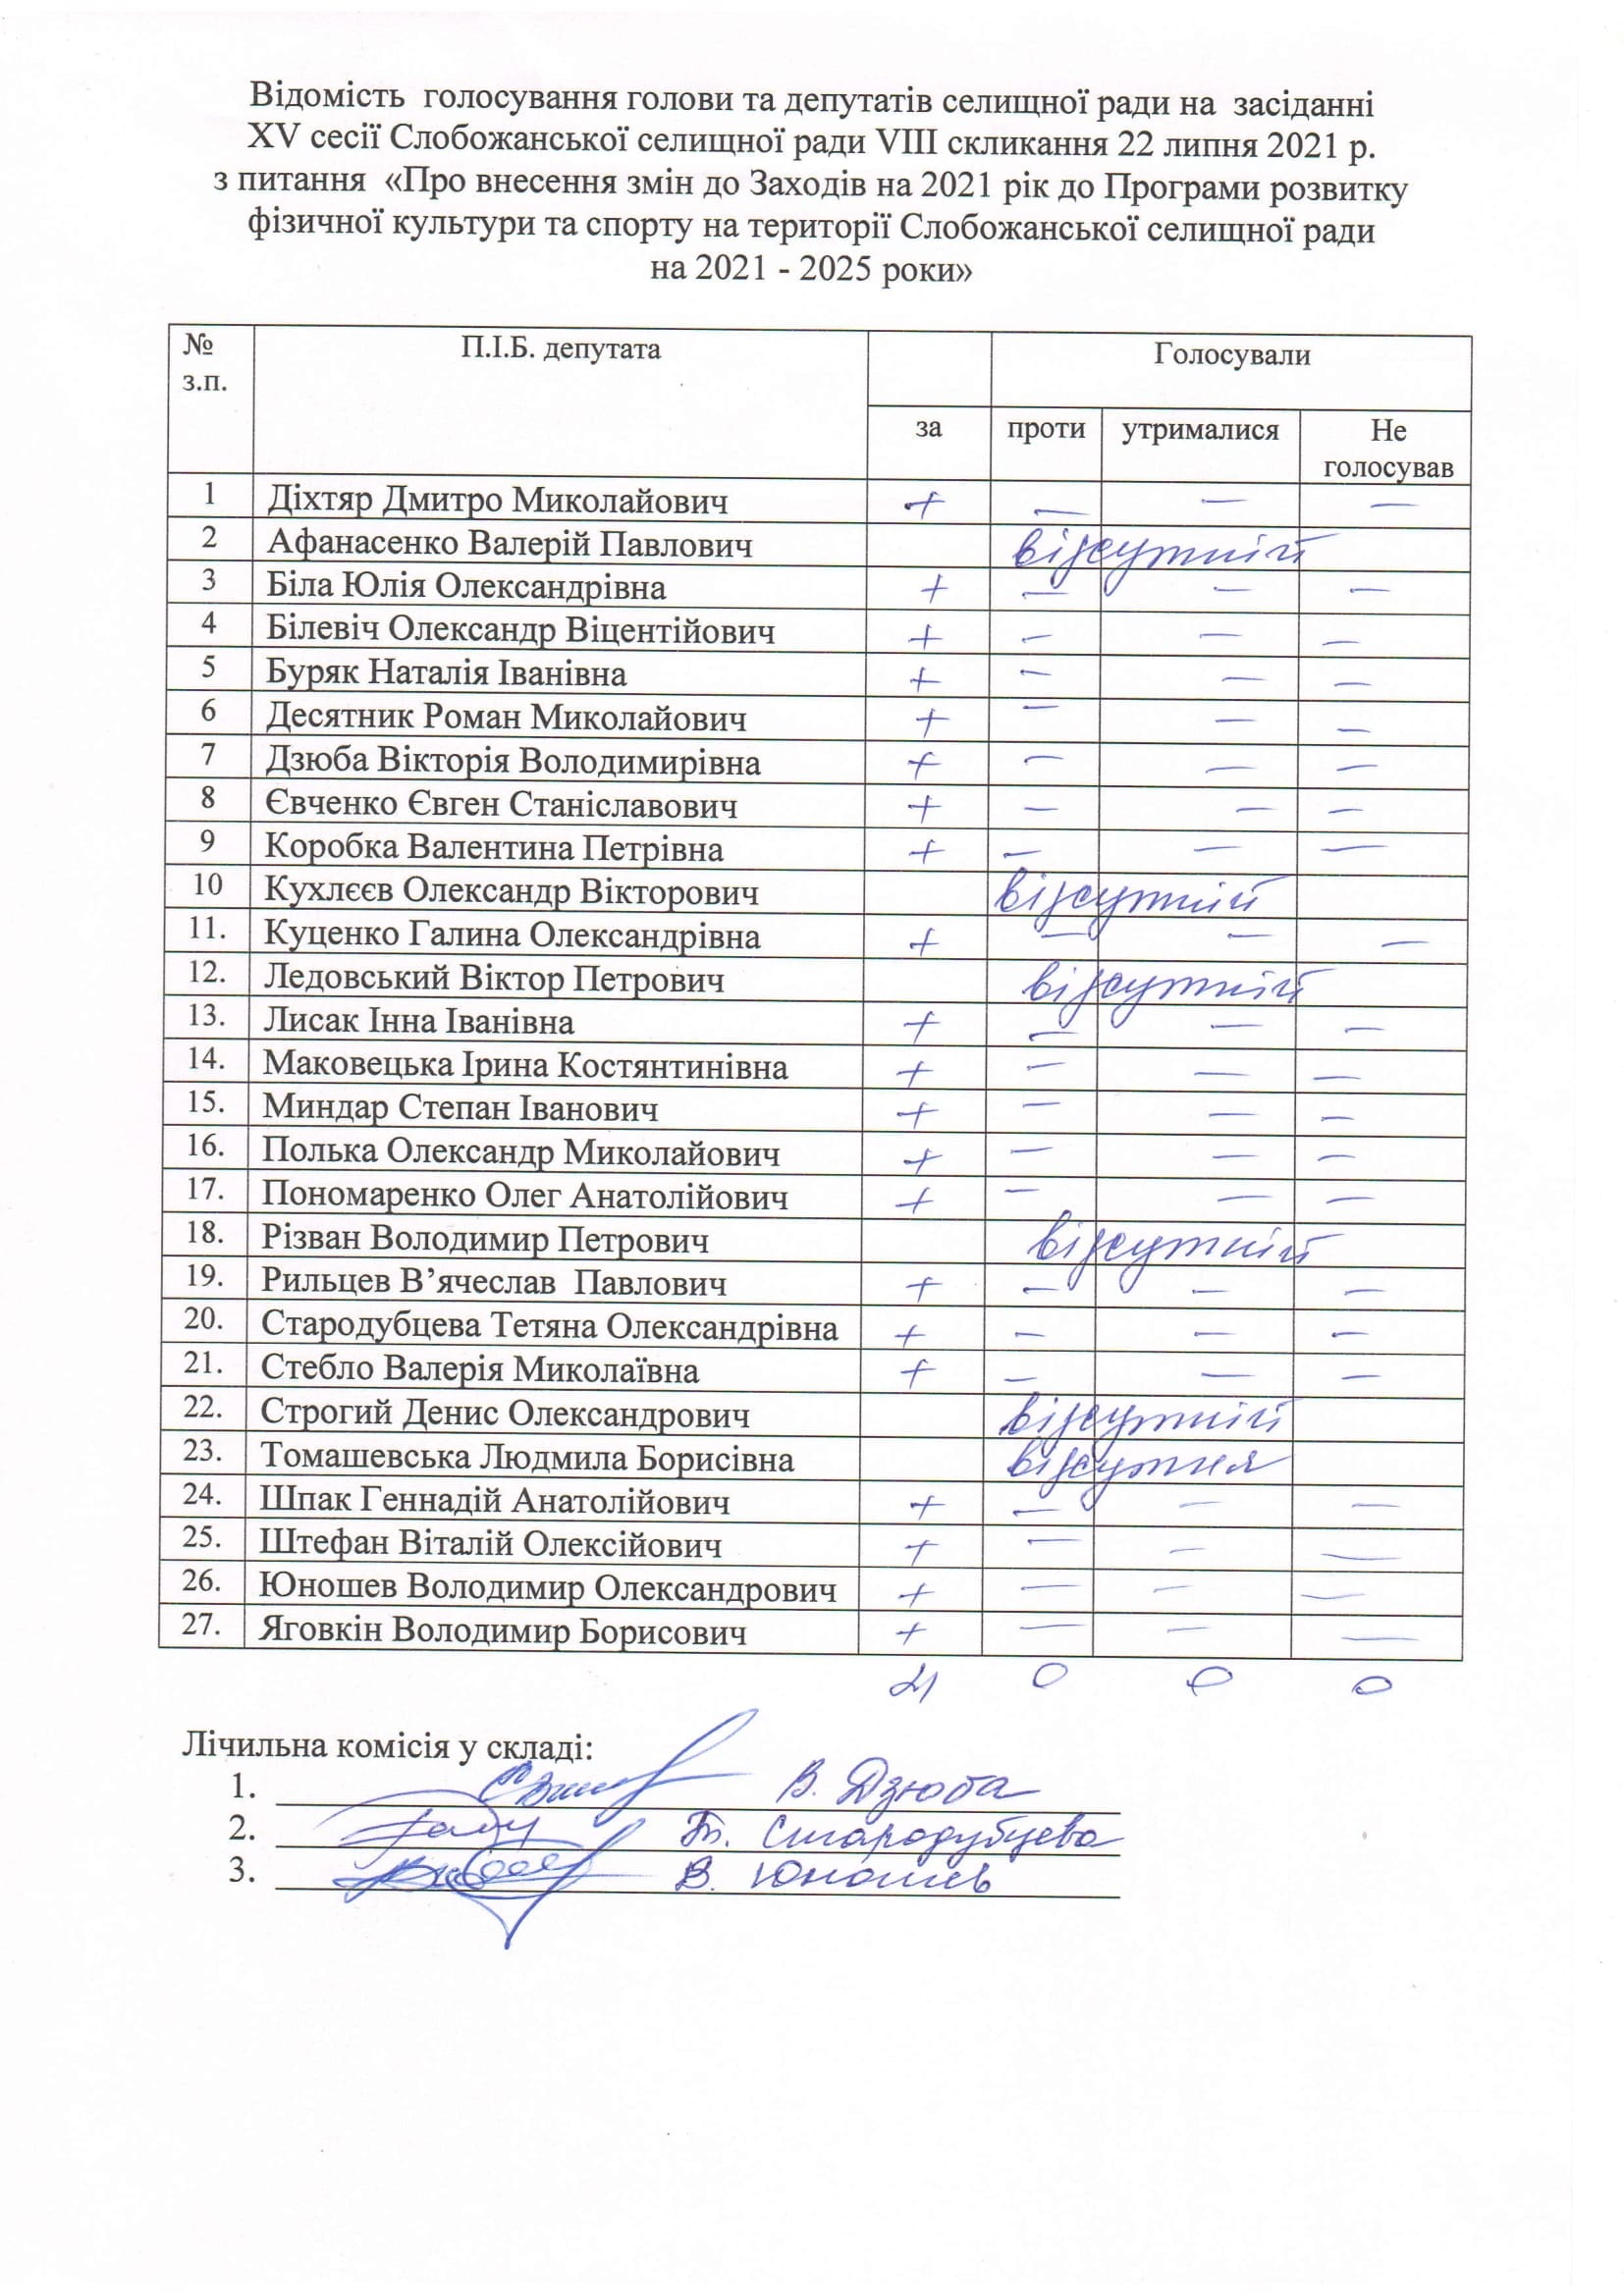 Відомість голосування голови та депутатів селищної ради на засіданні
XV сесії Слобожанської селищної ради VIII скликання 22 липня 2021 р.
з питання «Про внесення змін до Заходів на 2021 рік до Програми розвитку
фізичної культури та спорту на території Слобожанської селищної ради
на 2021 - 2025 роки»
№ з.п. П.І.Б. депутата Голосували
за проти утрималися Не голосував
1 Діхтяр Дмитро Миколайович + — — —
2 Афанасенко Валерій Павлович відсутній
3 Біла Юлія Олександрівна + — — —
4 Білевіч Олександр Віцентійович + — — —
5 Буряк Наталія Іванівна + — — —
6 Десятник Роман Миколайович + — — —
7 Дзюба Вікторія Володимирівна + — — —
8 Євченко Євген Станіславович + — — —
9 Коробка Валентина Петрівна + — — —
10 Кухлєєв Олександр Вікторович відсутній
11. Куценко Галина Олександрівна + — — —
12. Ледовський Віктор Петрович відсутній
13. Лисак Інна Іванівна + — — —
14. Маковецька Ірина Костянтинівна + — — —
15. Миндар Степан Іванович + — — —
16. Полька Олександр Миколайович + — — —
17. Пономаренко Олег Анатолійович + — — —
18. Різван Володимир Петрович відсутній
19. Рильцев В’ячеслав Павлович + — — —
20. Стародубцева Тетяна Олександрівна + — — —
21. Стебло Валерія Миколаївна + — — —
22. Строгий Денис Олександрович відсутній
23. Томашевська Людмила Борисівна відсутня
24. Шпак Геннадій Анатолійович + — — —
25. Штефан Віталій Олексійович + — — —
26. Юношев Володимир Олександрович + — — —
27. Яговкін Володимир Борисович + — — —
21 0 0 0
Лічильна комісія у складі:
1. В. Дзюба
2. Т. Стародубцева
3. В. Юношев